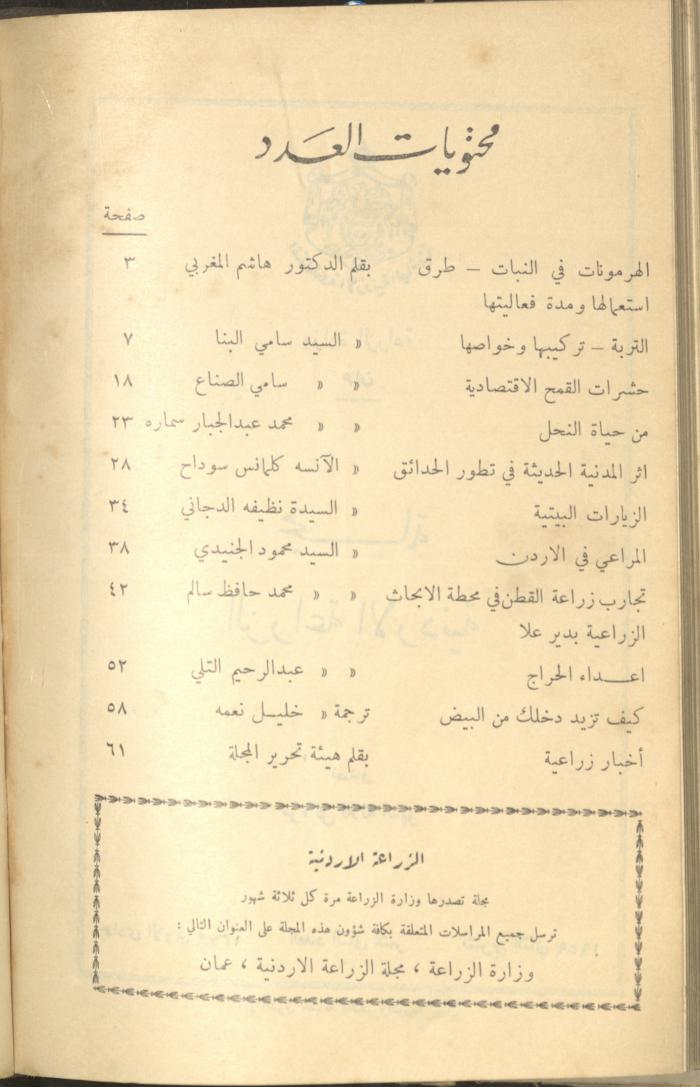 محتويات العدد
صفحة
الهرمونات في النبات – طرق بقلم الدكتور هاشم المغربي ٣
استعمالها ومدة فعاليتها
التربة – تركيبها وخواصها « السيد سامي البنا ٧
حشرات القمح الاقتصادية « « سامي الصناع ١٨
من حياة النحل « « محمد عبدالجبار سماره ٢٣
اثر المدنية الحديثة في تطور الحدائق « الآنسه كلمانس سوداح ٢٨
الزيارات البيتية « السيدة نظيفه الدجاني ٣٤
المراعي في الاردن « السيد محمود الجنيدي ٣٨
تجارب زراعة القطن في محطة الابحاث « « محمد حافظ سالم ٤٢
الزراعية بدير علا
اعداء الحراج « « عبدالرحيم التلي ٥٢
كيف تزيد دخلك من البيض ترجمة « خليل نعمه ٥٨
أخبار زراعية بقلم هيئة تحرير المجلة ٦١
الزراعة الاردنية
مجلة تصدرها وزارة الزراعة مرة كل ثلاثة شهور
ترسل جميع المراسلات المتعلقة بكافة شؤون هذه المجلة على العنوان التالي :
وزارة الزراعة ، مجلة الزراعة الاردنية ، عمان